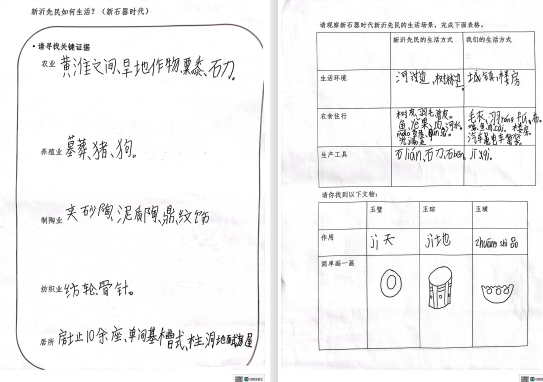 新沂先民如何生活？（新石器时代）
• 请寻找关键证据
农业 黄淮之间、旱地作物、粟黍、石刀。
养殖业 墓葬、猪、狗。
制陶业 夹砂陶、泥质陶、鼎、纹饰
纺织业 纺轮、骨针。
居所 房止10余座、单间基槽式、柱洞地
请观察新石器时代新沂先民的生活场景，完成下面表格。
新沂先民的生活方式 我们的生活方式
生活环境 河边、树林边。 城镇、楼房
衣食住行 树皮、羽毛
鱼、 肉、河水 楼房
汽车、电车
生产工具 石lián、石刀、石 jī xiè。
请你找到以下文物：
玉璧 玉琮 玉璜
作用 jì天 jì地 zhuāng shì品
简单画一画